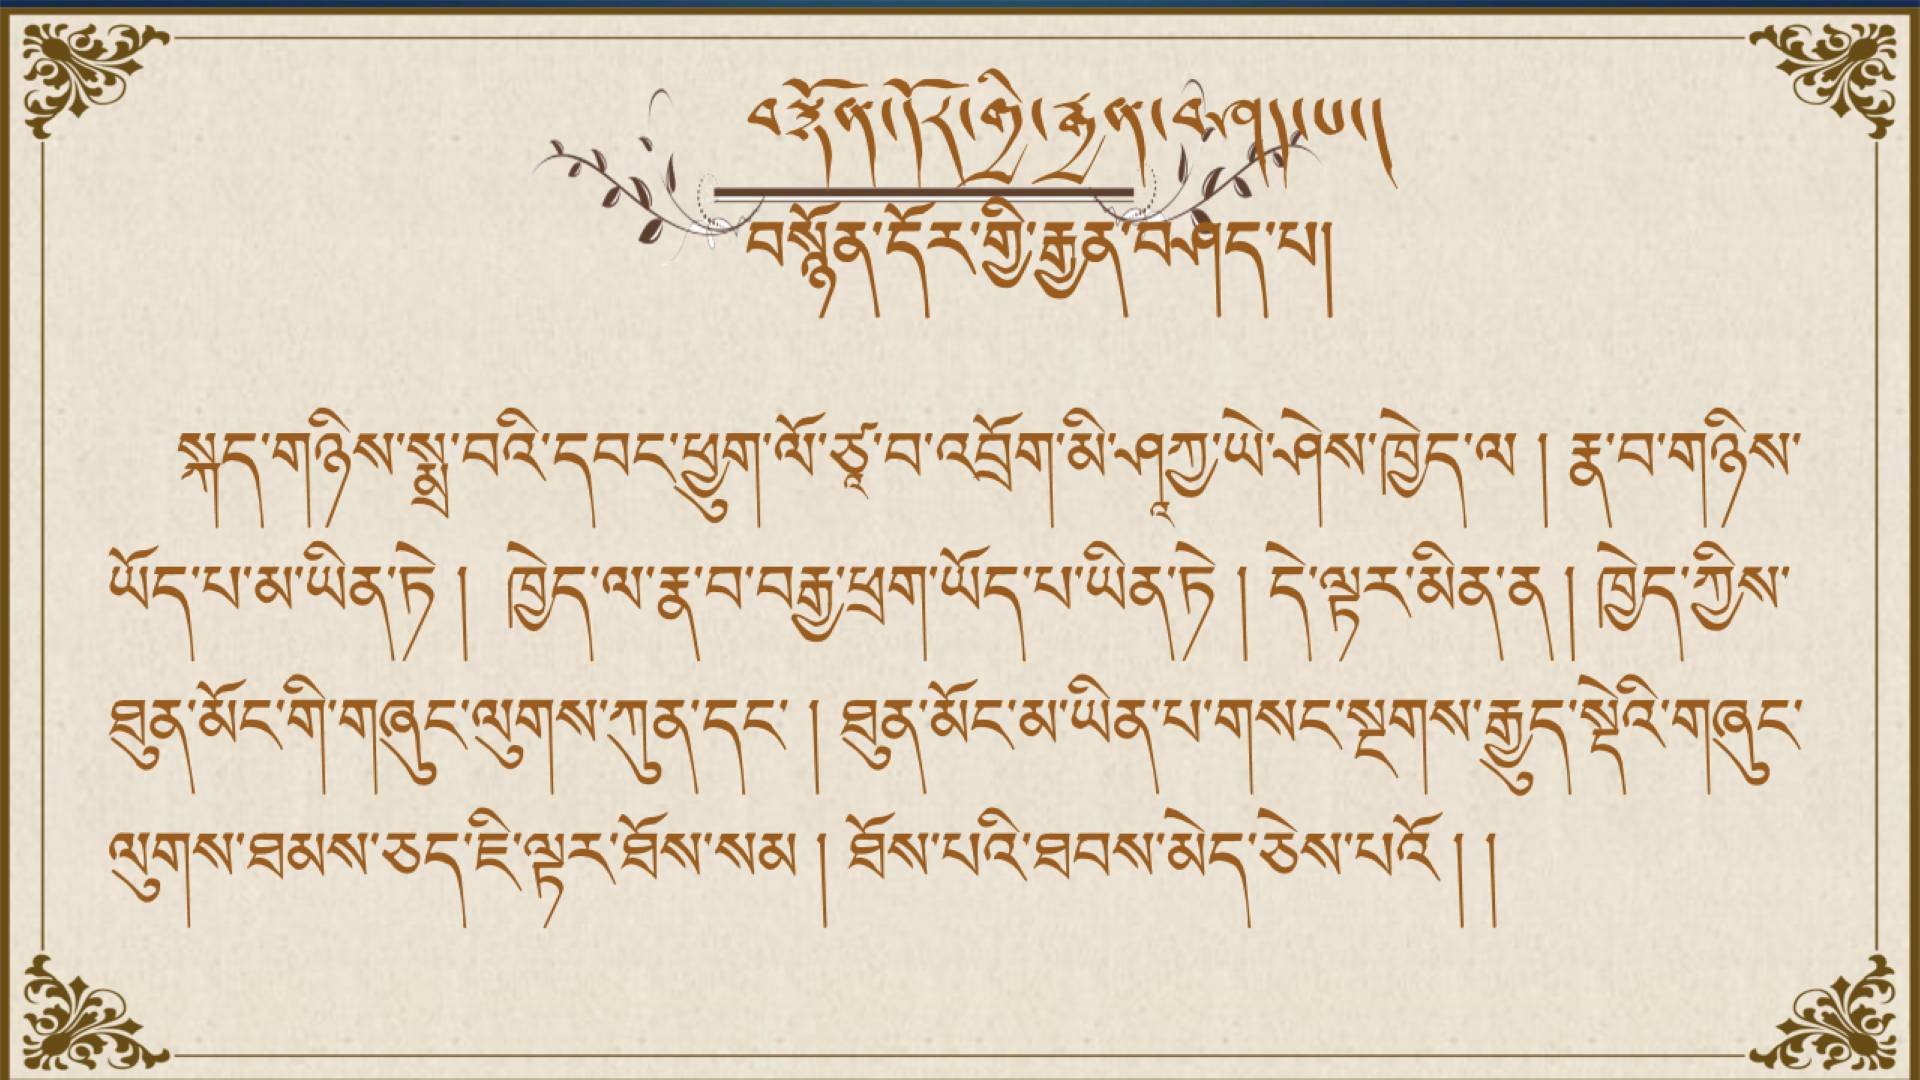 བསྙོན་དོར་གྱི་རྒྱན་བཤད་པ།
བསྙོན་དོར་གྱི་རྒྱན་བཤད་པ།
སྐད་གཉིས་སྨྲ་བའི་དབང་ཕྱུག་ལོ་ཙཱ་བ་འབྲོག་མི་ཤཱཀྱ་ཡེ་ཤེས་ཁྱེད་ལ ། རྣ་བ་གཉིས་
ཡོད་པ་མ་ཡིན་ཏེ ། ཁྱེད་ལ་རྣ་བ་བརྒྱ་ཕྲག་ཡོད་པ་ཡིན་ཏེ ། དེ་ལྟར་མིན་ན ། ཁྱེད་ཀྱིས་
ཐུན་མོང་གི་གཞུང་ལུགས་ཀུན་དང་ ། ཐུན་མོང་མ་ཡིན་པ་གསང་སྔགས་རྒྱུད་སྡེའི་གཞུང་
ལུགས་ཐམས་ཅད་ཇི་ལྟར་ཐོས་སམ ། ཐོས་པའི་ཐབས་མེད་ཅེས་པའོ ། །